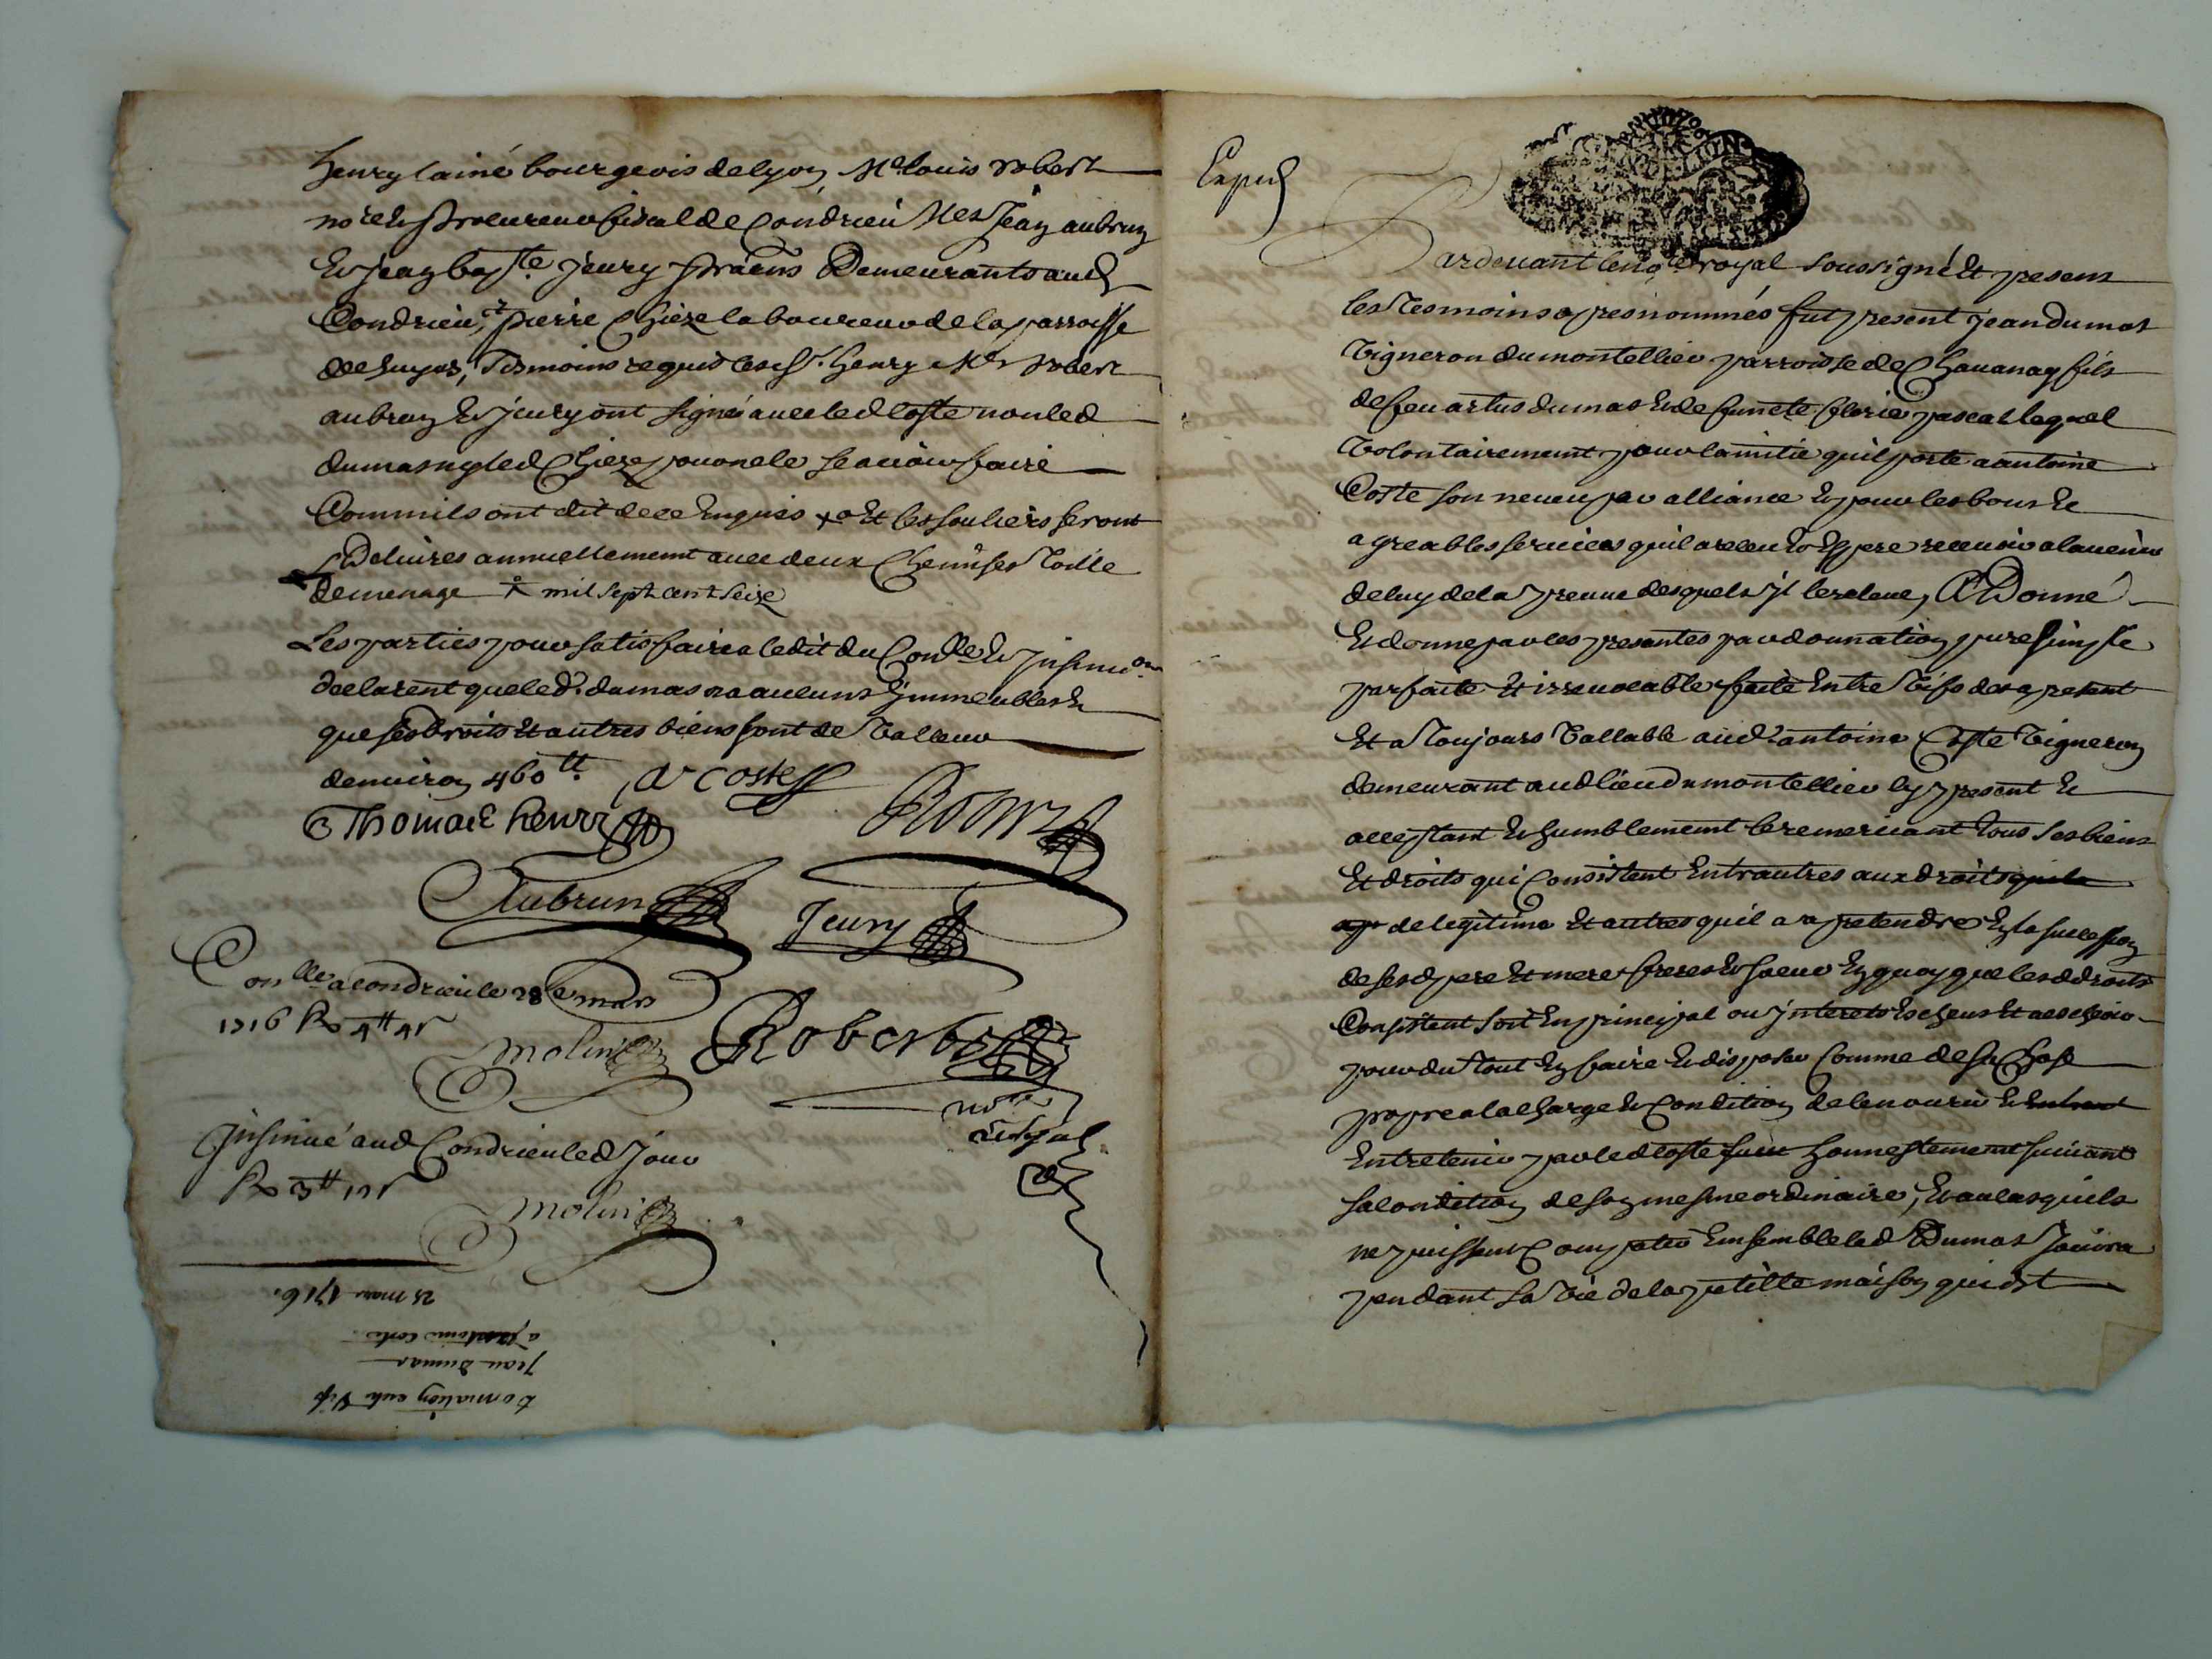 henry lainé bourgeois de lyon, Me louis robert
no.re & procureur fiscal de Condrieu Mes Jean aubrun
& jean bapte. jeury pratiens Demeurants aud
Condrieu, et pierre Chieze laboureur de la parroisse
de tesmoins requis lesd sr. henry Me robert
aubrun & jeury ont signé avec led Coste non led
dumas ny led Chieze pour ne le scavoir faire
Comm ils ont dit de ce enquis & les souliers seront
Delivres annuellement avec deux Chemises Toille
de menage mil sept cent seize
Les parties pour satisfaire a ledit du Conlle & Insinuon
declarent que led. dumas na aucuns Immeubles &
que ses Droits et autres biens sont de Valleur
denviron 460 tt.
Ar coste
Thomas henri
Aubrun
Jeury
Conlle a condrieu le 28e mars
1716 R 4tt 4s
Molin
Robert
nore
royal
Insinué aud Condrieu led Jour
R 3tt
Molin
donnation entre Vifs
Jean dumas
a antoine coste
28 mars 1716.
Exped
Pardevant le nore royal soussigné & presens
les Tesmoins apres nommés fut present jean dumas
Vigneron du montellier parroisse de Chavanay fils
de feu artus dumas & de funete florie pascal lequel
Volontairement pour lamitié quil porte a antoine
Coste son neveu par alliance & pour les bons &
agreables services quil a receu & Espere recevoir a lavenir
de luy de la preuve desquels jl le releve, A Donné
& donne par les presantes par donnation pure simple
parfaite et irrevocable faite Entre Vifs des a present
Et a Toujours Vallable aud antoine Coste Vigneron
demeurant aud lieu du montellier Icy present &
acceptant & humblement le remerciant Tous ses biens
Et droits qui Consistent Entrautres aux droits
de legitime et autres quil a a pretendre En la succession
de sesd pere et mere freres & soeur En quoy que lesd droits
Consistent soit En principal ou Interets Escheus et a escheoir
pour du Tout En faire & disposer Comme de sa Chose
propre a la charge & Condition de le nourir &
Entretenir par led Coste honnestement suivant
sa condition de son mesme ordinaire, & au cas quils
ne puissent Compatir Ensemble led Dumas Jouira
pendant sa Vie de la petitte maison qui est